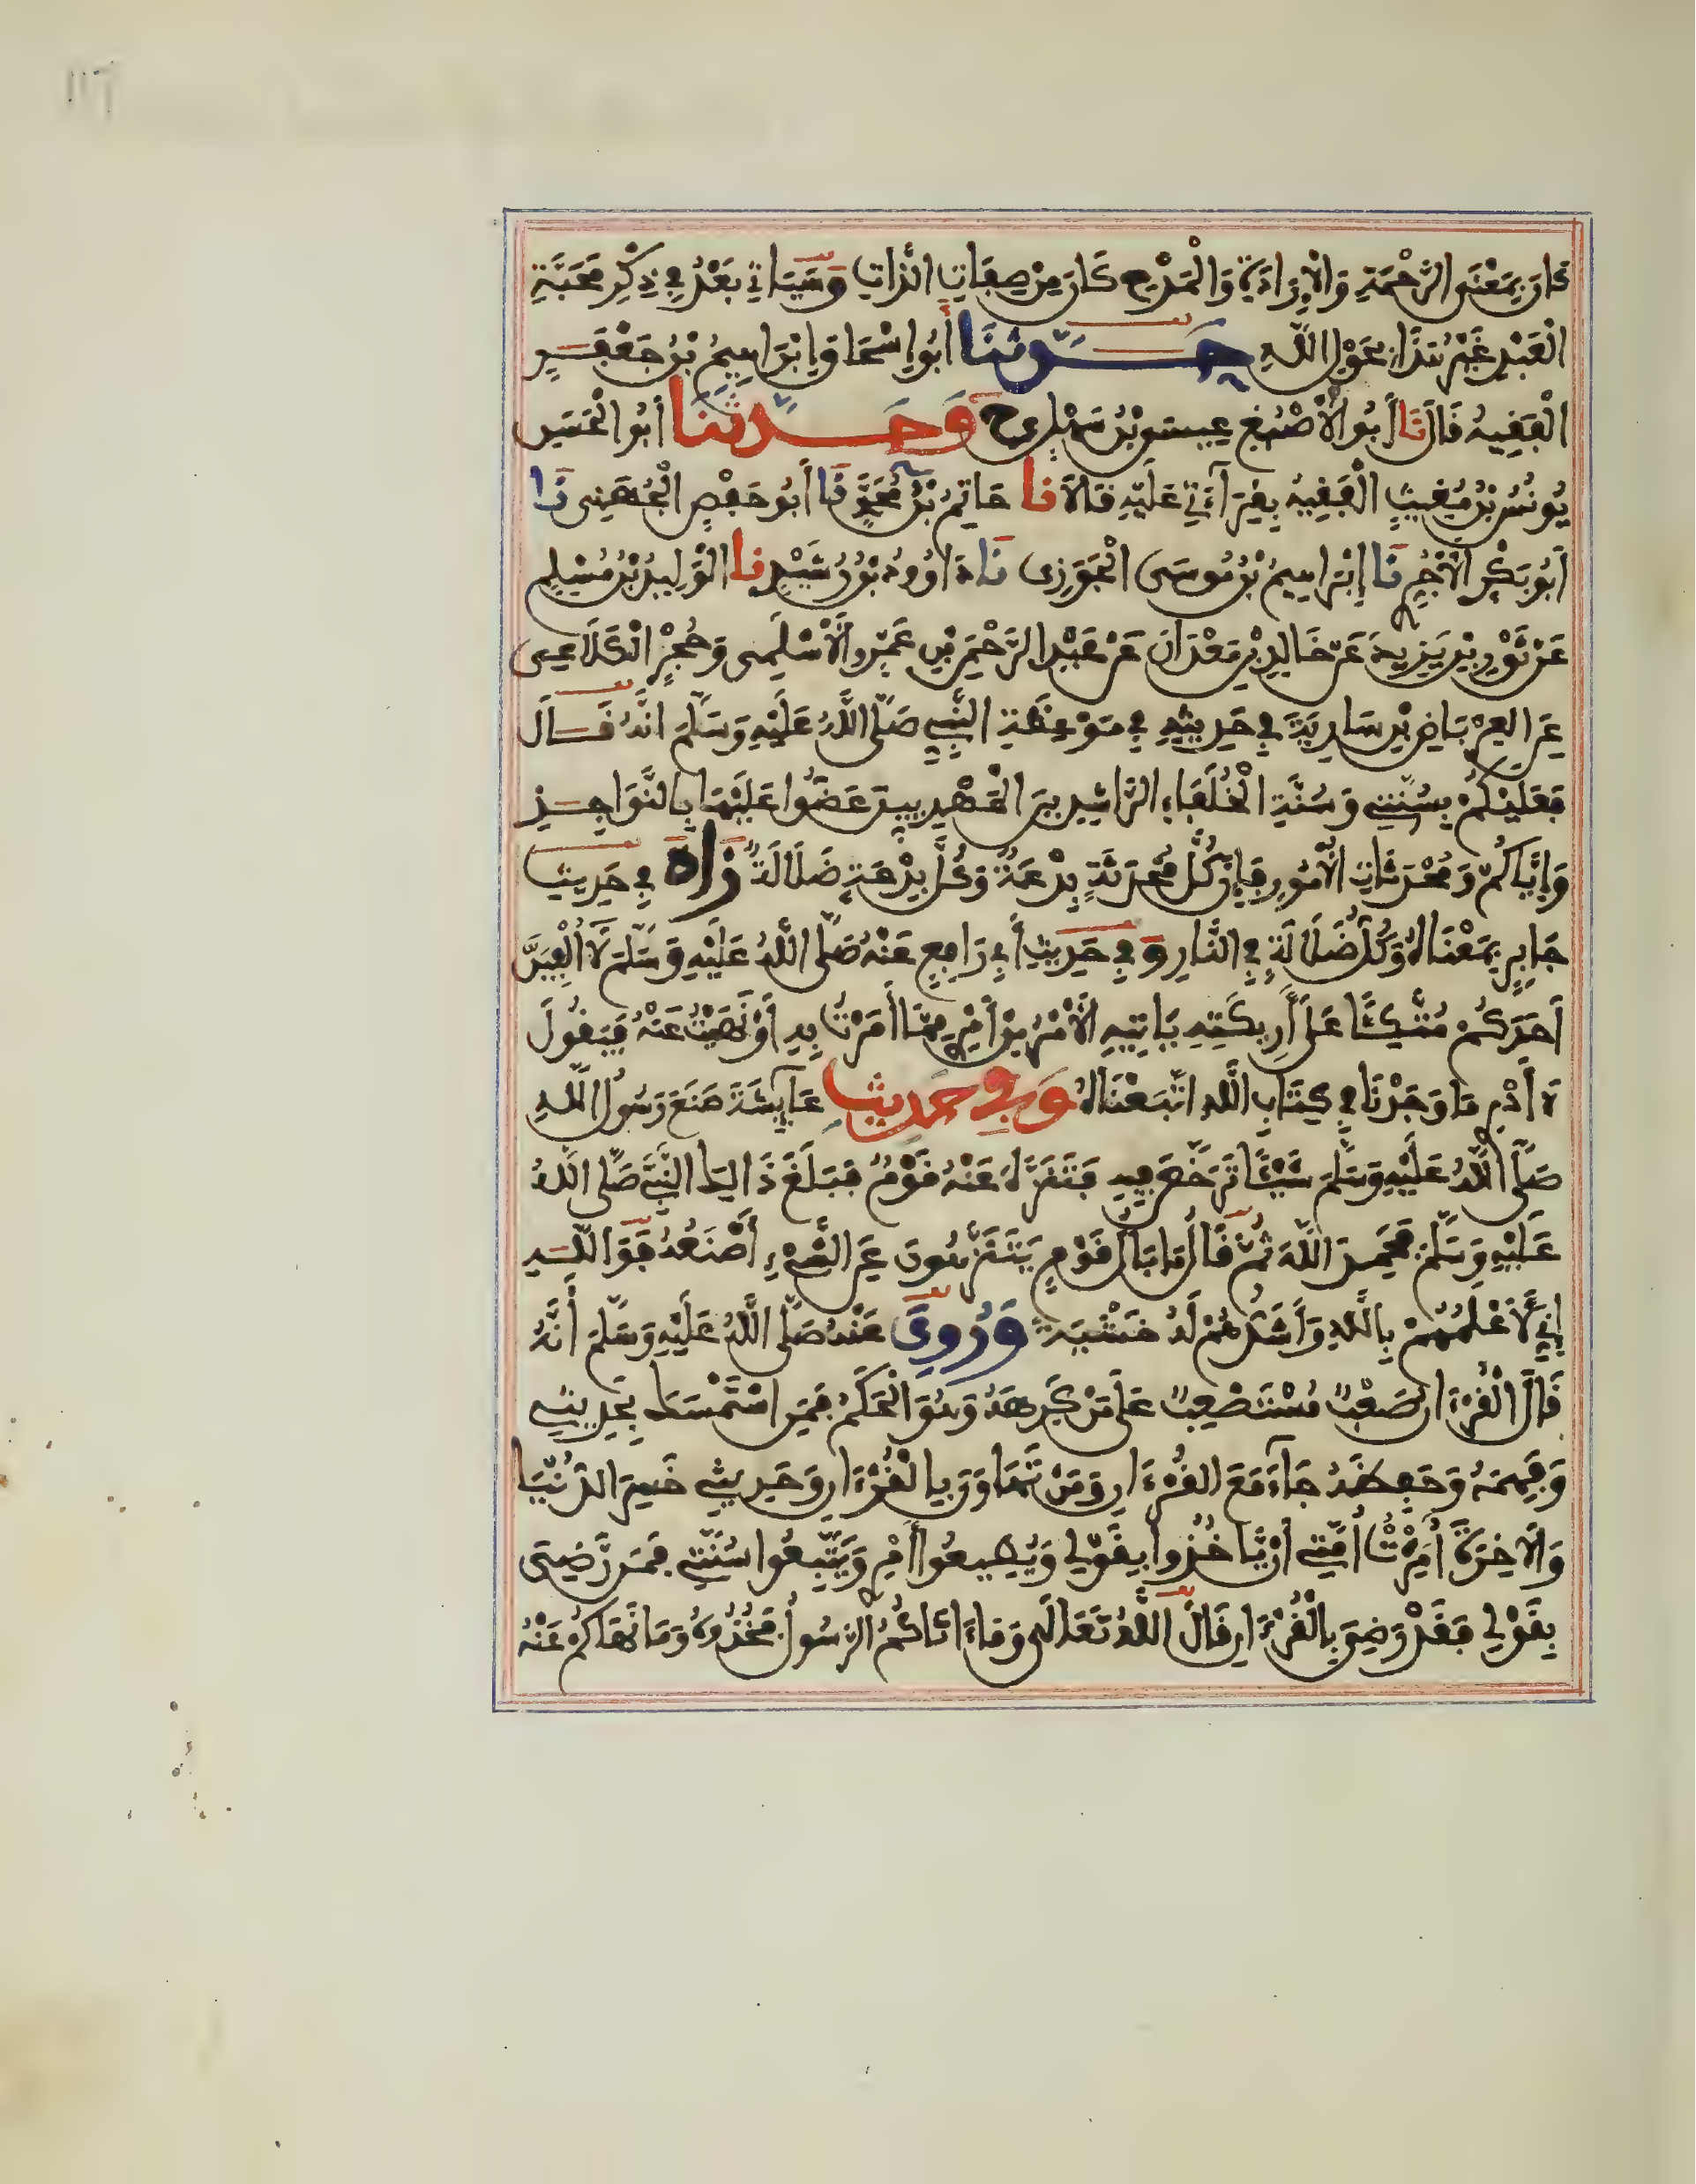 كَانَ بِمَعْنَى الرَّحْمَةِ وَالْإِرَادَةِ وَالْمَدْحِ كَانَ مِنْ صِفَاتِ الذَّاتِ وَسَيَأْتِي بَعْدُ فِي ذِكْرِ مَحَبَّةِ
الْعَبْدِ غَيْرُ هَذَا بِحَوْلِ اللَّهِ حَدَّثَنَا أَبُو إِسْحَاق إِبْرَاهِيمُ بْنُ جَعْفَرٍ
الْفَقِيهُ قَالَ نَا أَبُو الْأَصْبَغِ عِيسَى بْنُ سَهْلٍ ح وَحَدَّثَنَا أَبُو الْحَسَنِ
يُونُسُ بْنُ مُغِيثٍ الْفَقِيهُ بِقِرَاءَتِي عَلَيْهِ قَالَا نا حَاتِمُ بْنُ مُحَمَّدٍ نَا أَبُو حَفْصٍ الْجُهَنِي نَا
أَبُو بَكْرٍ الْآجُرِي نَا إِبْرَاهِيمُ بْنُ مُوسَى الْجَوْزِي نَا دَاوُودُ بْنُ رُشَيْدٍ نا الْوَلِيدُ بْنُ مُسْلِمٍ
عَنْ ثَوْرِ بْنِ يَزِيدَ عَنْ خَالِدِ بْنِ مَعْدَانَ عَنْ عَبْدِ الرَّحْمَنِ بْنِ عَمْرٍو الْأَسْلَمِي وَحُجْرٍ الْكَلَاعِي
عَنِ الْعِرْبَاضِ بْنِ سَارِيَةَ فِي حَدِيثِهِ فِي مَوْعِظَةِ النَّبِيِّ صَلَّى اللَّهُ عَلَيْهِ وَسَلَّمَ أَنَّهُ قَالَ
فَعَلَيْكُمْ بِسُنَّتِي وَسُنَّةِ الْخُلَفَاءِ الرَّاشِدِينَ الْمَهْدِيِّينَ عَضُّوا عَلَيْهَا بِالنَّوَاجِذِ
وَإِيَّاكُمْ وَمُحْدَثَاتِ الْأُمُورِ فَإِنَّ كُلَّ مُحْدَثَةٍ بِدْعَةٌ وَكُلَّ بِدْعَةٍ ضَلَالَةٌ زَادَ فِي حَدِيثِ
جَابِرٍ بِمَعْنَاهُ وَكُلُّ ضَلَالَةٍ فِي النَّارِ وَفِي حَدِيثِ أَبِي رَافِعٍ عَنْهُ صَلَّى اللَّهُ عَلَيْهِ وَسَلَّمَ لَا أُلْفِيَنَّ
أَحَدَكُمْ مُتَّكِئًا عَلَى أَرِيكَتِهِ يَأْتِيهِ الْأَمْرُ مِنْ أَمْرِي مِمَّا أَمَرْتُ بِهِ أَوْ نَهَيْتُ عَنْهُ فَيَقُولُ
لَا أَدْرِي مَا وَجَدْنَا فِي كِتَابِ اللَّهِ اتَّبَعْنَاهُ وَفِي حَدِيثِ عَائِشَةَ صَنَعَ رَسُولُ اللَّهِ
صَلَّى اللَّهُ عَلَيْهِ وَسَلَّمَ شَيْئًا تَرَخَّصَ فِيهِ فَتَنَزَّهَ عَنْهُ قَوْمٌ فَبَلَغَ ذَالِكَ النَّبِيَّ صَلَّى اللَّهُ
عَلَيْهِ وَسَلَّمَ فَحَمِدَ اللَّهَ ثُمَّ قَالَ مَا بَالُ قَوْمٍ يَتَنَزَّهُونَ عَنِ الشَّيْءِ أَصْنَعُهُ فَوَاللَّهِ
إِنِّي لَأَعْلَمُهُمْ بِاللَّهِ وَأَشَدُّهُمْ لَهُ خَشْيَةً وَرُوِيَ عَنْهُ صَلَّى اللَّهُ عَلَيْهِ وَسَلَّمَ أَنَّهُ
قَالَ الْقُرْءَانُ صَعْبٌ مُسْتَصْعِبٌ عَلَى مَنْ كَرِهَهُ وَهُوَ الْحَكَمُ فَمَنِ اسْتَمْسَكَ بِحَدِيثِي
وَفَهِمَهُ وَحَفِظَهُ جَاءَ مَعَ الْقُرْءَانِ وَمَنْ تَهَاوَنَ بِالْقُرْءَانِ وَحَدِيثِي خَسِرَ الدُّنْيَا
وَالْآخِرَةَ أُمِرَتْ أُمَّتِي أَنْ يَأْخُذُوا بِقَوْلِي وَيُطِيعُوا أَمْرِي وَيَتَّبِعُوا سُنَّتِي فَمَنْ رَضِيَ
بِقَوْلِي فَقَدْ رَضِيَ بِالْقُرْءَانِ قَالَ اللَّهُ تَعَالَى وَمَا ءَاتَاكُمُ الرَّسُولُ فَخُذُوهُ وَمَا نَهَاكُمْ عَنْهُ